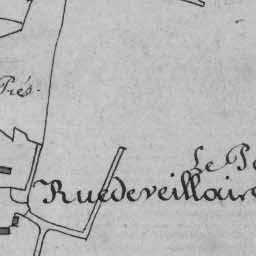 Prés.
Le Pe
Ruedeveillair